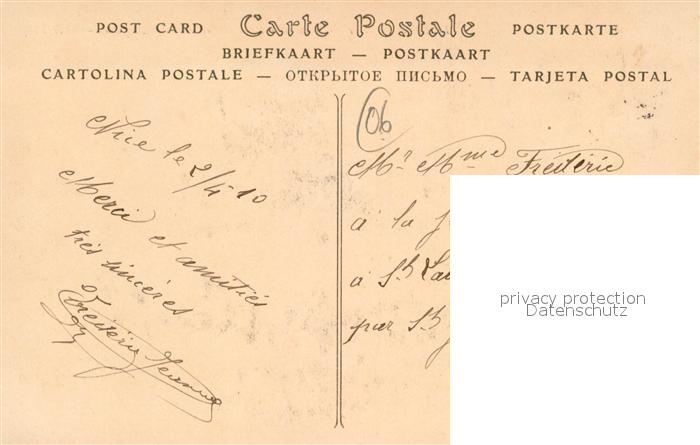 POST CARD Carte Postale POSTKARTE
BRIEFKAART — POSTKAART
CARTOLINA POSTALE — ОТКРЫТОЕ ПИСЬМО — TARJETA POSTAL
Nice le 2/4-10
Merci et amitiés
très sincères
Frédéric Jeanne
06
Mr Mme Frédéric
à la
à St Lau
par St
privacy protection
Datenschutz